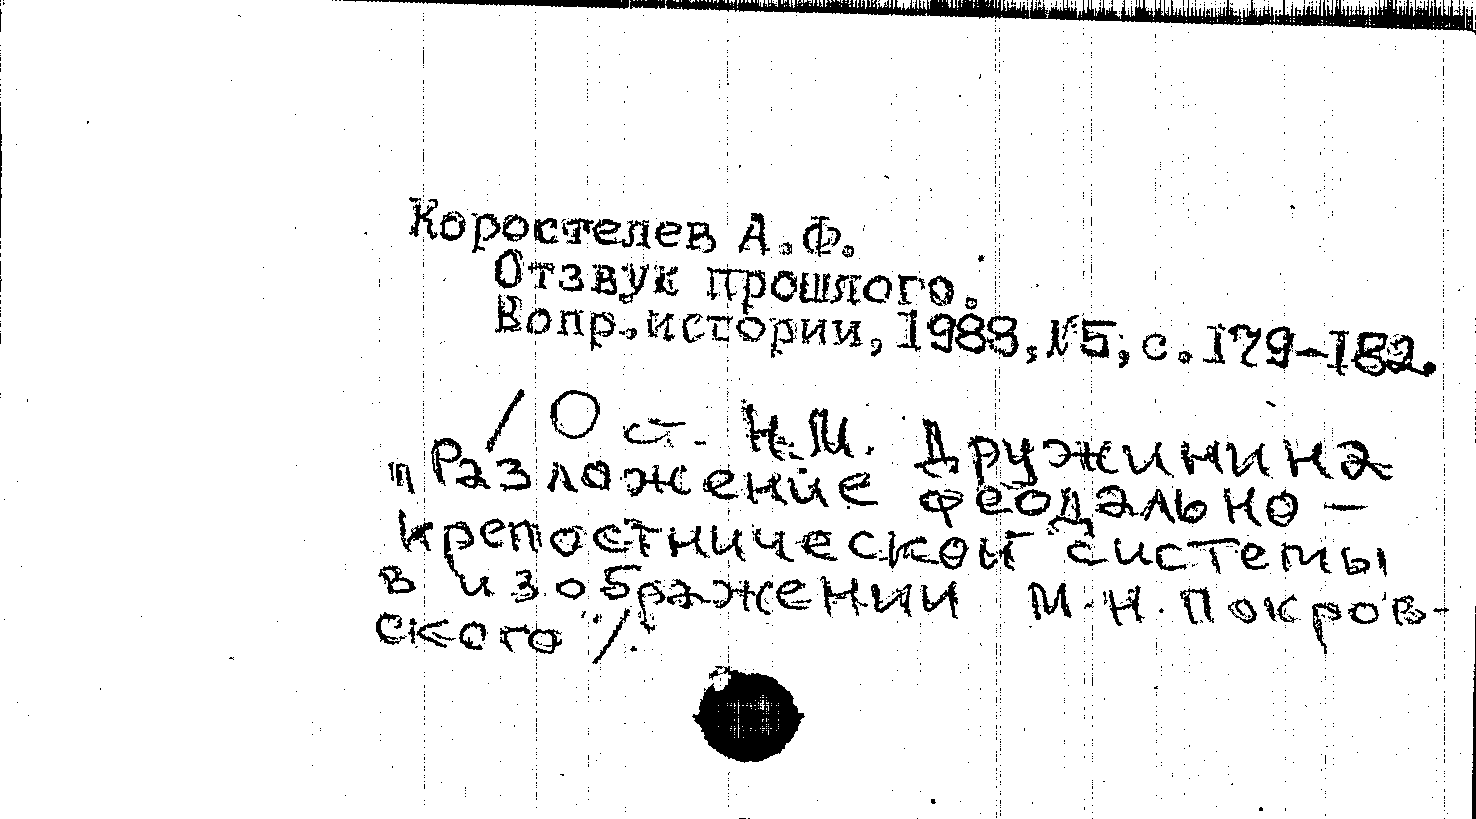 Коростелев А.Ф.
Отзвук прошлого.
Вопр.истории, 1988, №5, с. 179-182.
/ О ст. Н.М. Дружинина
"Разложение феодально-
крепостнической системы
в изображении М.Н. Покров-
ского"/.